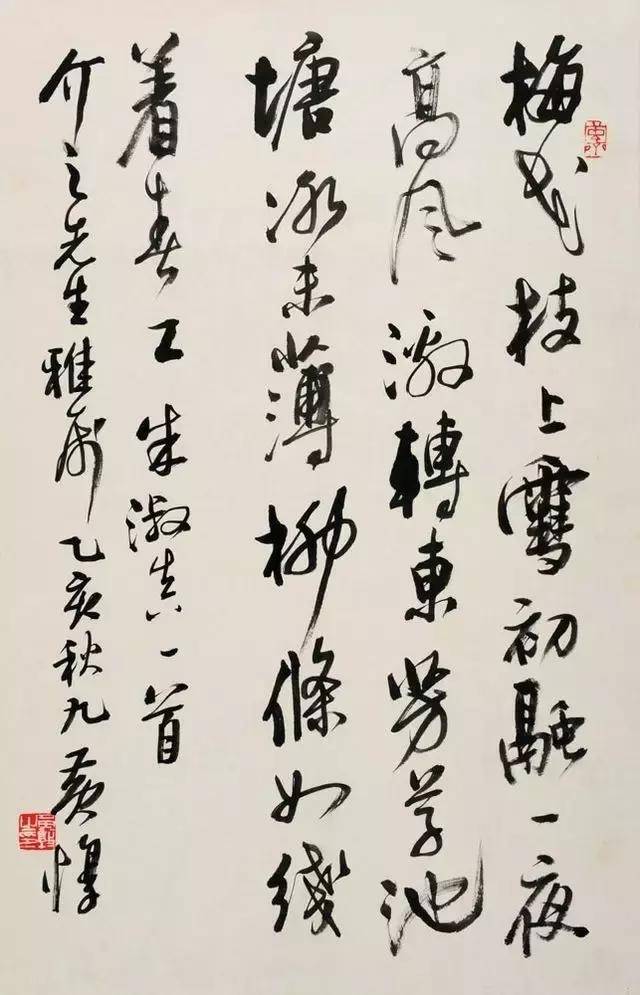 梅花枝上雪初融一夜
高风激轉東芳草池
塘冰未薄柳條如綫
着春工朱淑真一首
介之先生雅属乙亥秋九黄惇